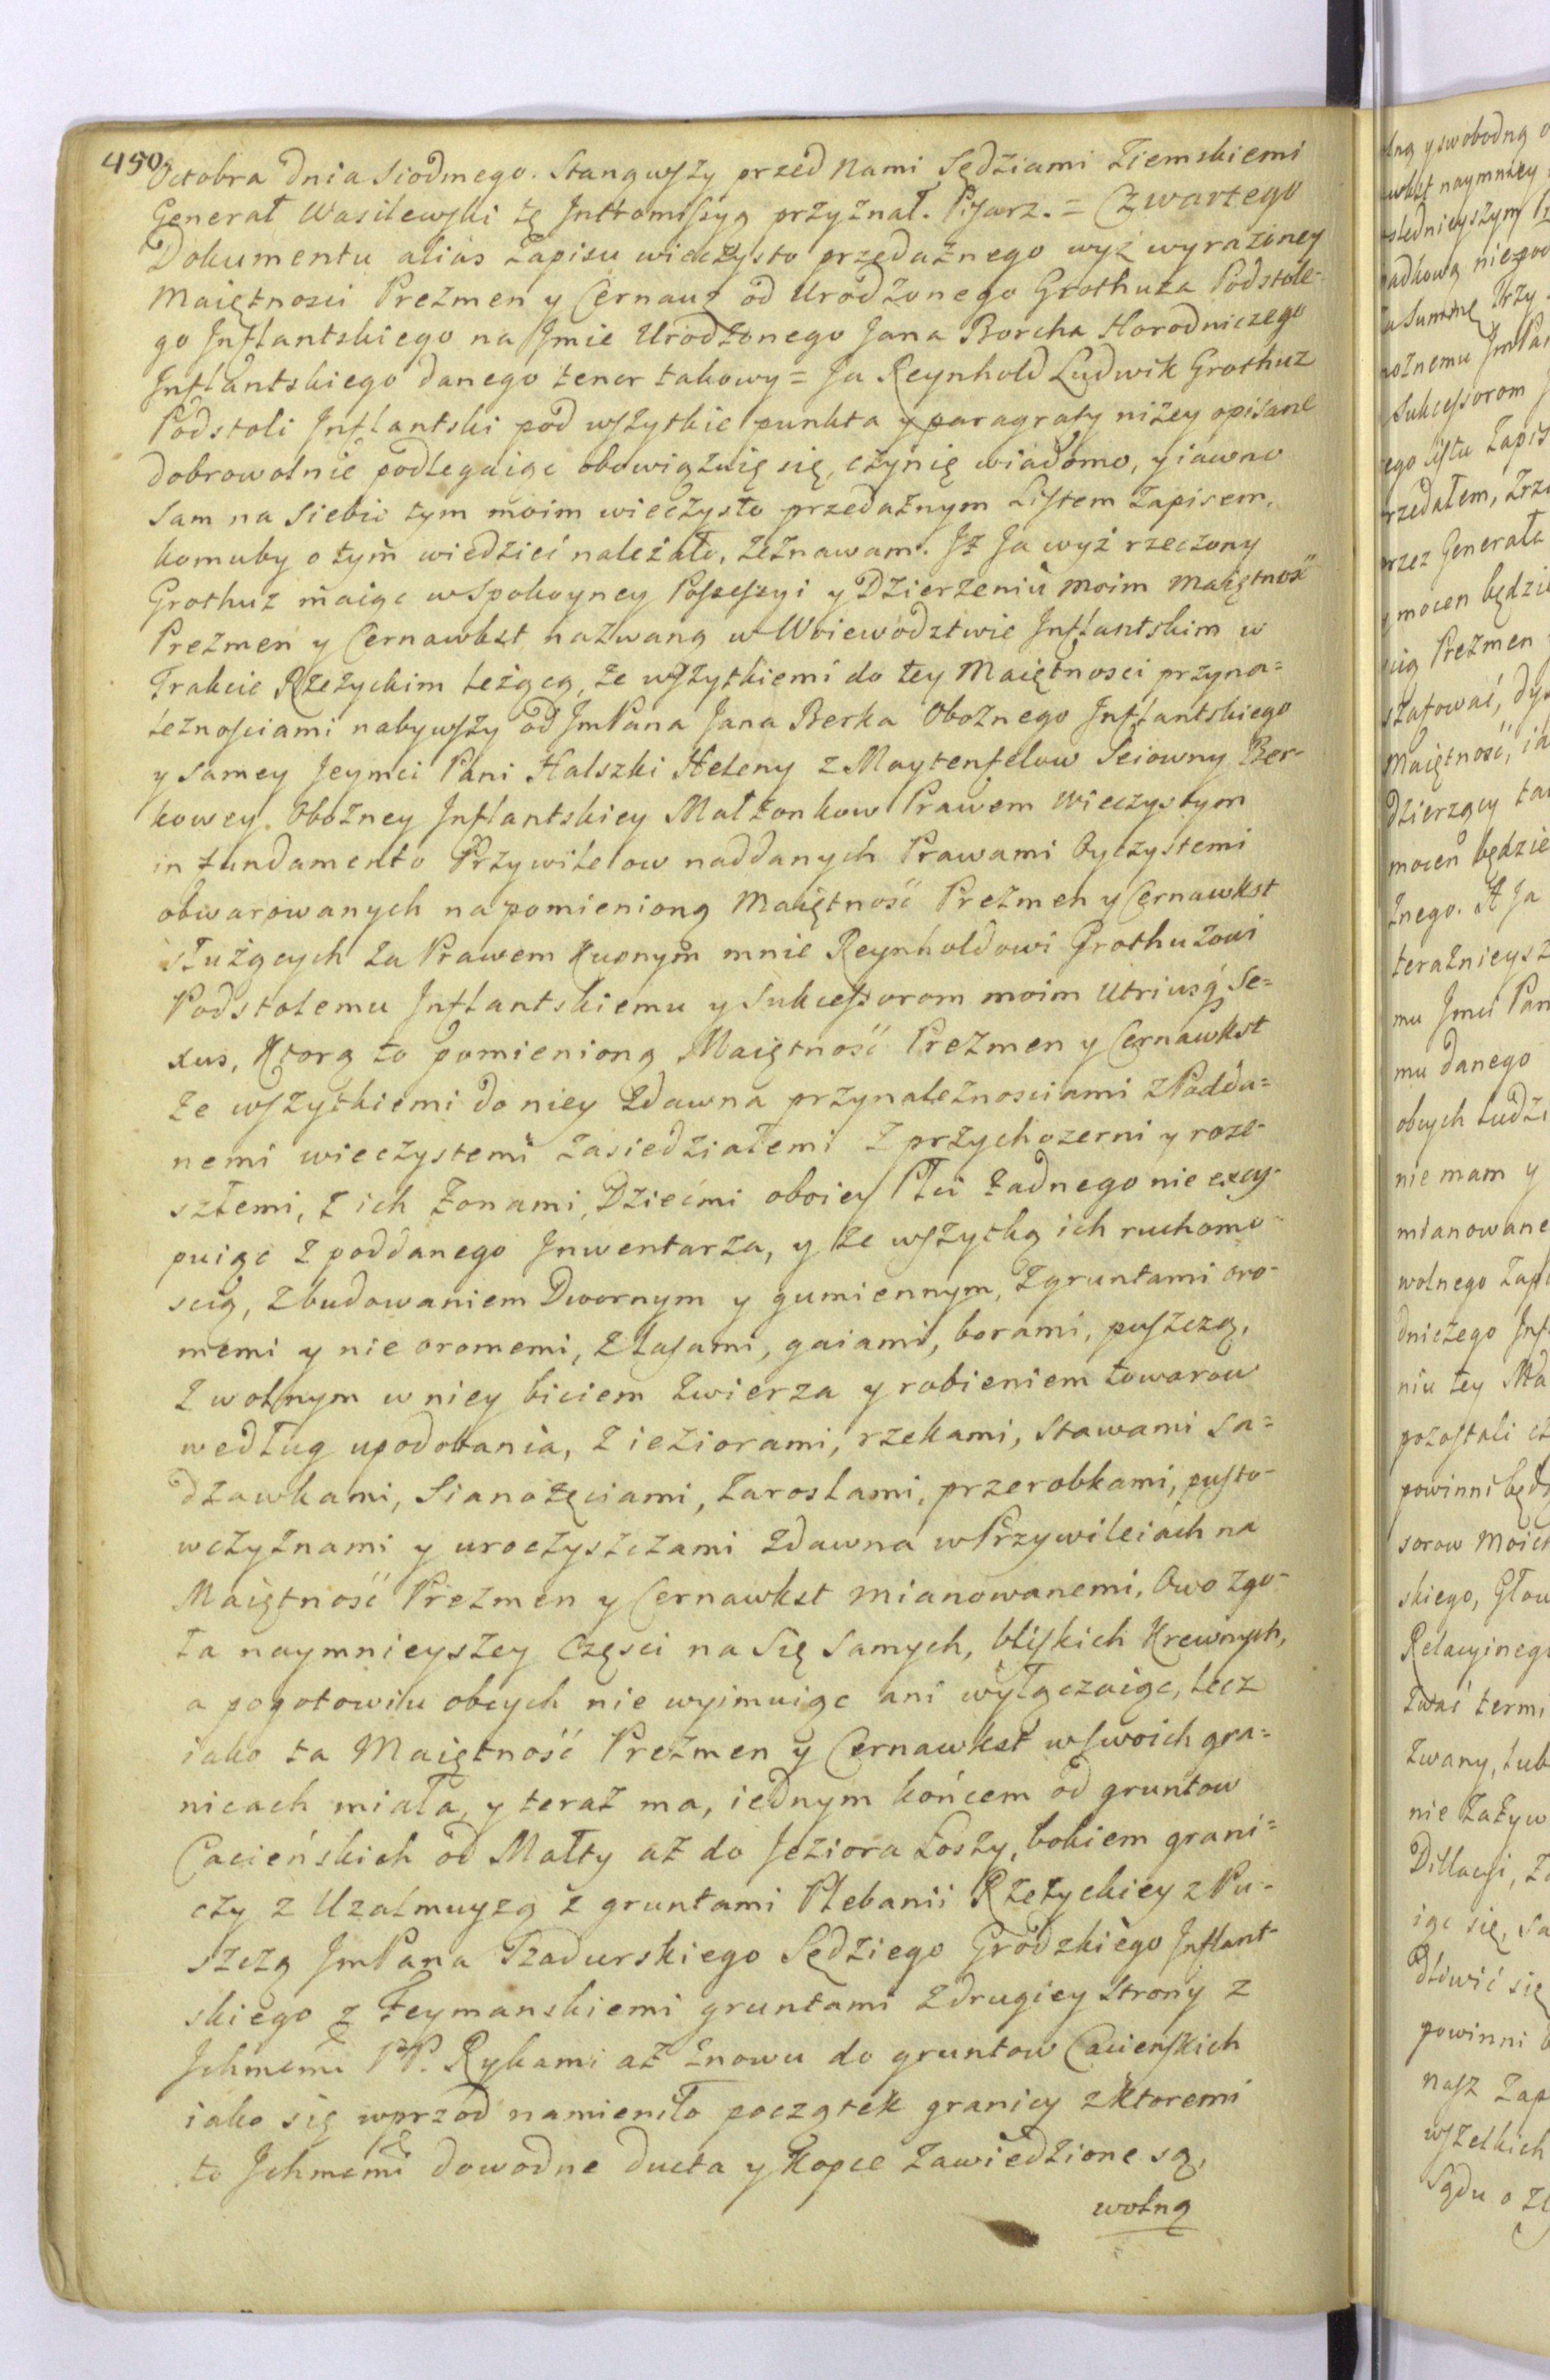 450
Octobra dnia Siodmego. Stanąwszy przed Nami Sędziami Ziemskiemi
Generał Wasilewski tę Intromissyą przyznał. Pisarz. = Czwartego
Dokumentu alias Zapisu wieczysto przedażnego wyż wyrażoney
Maiętnosci Prezmen y Cernauz od Urodzonego Grothuza Podstole-
go Inflantskiego na Jmie Urodzonego Jana Borcha Horodniczego
Inflantskiego danego tenor takowy = Ja Reynhold Ludwik Grothuz
Podstoli Inflantski pod wszytkie punkta y paragrafy niżey opisane
dobrowolnie podlegaiąc obowiązuię się, czynię wiadomo, y iawno
sam na siebie tym moim wieczysto przedażnym Listem Zapisem,
komuby o tym wiedzieć należało, zeznawam. Jż Ja wyż rzeczony
Grothuz maiąc w spokoyney Possessyi y Dzierżeniu moim Maiętność
Prezmen y Cernawkst nazwaną w Woiewodztwie Inflantskim w
Trakcie Rzeżyckim leżącą, ze wszytkiemi do tey Maiętnosci przyna=
leżnościami nabywszy od JmPana Jana Berka Obożnego Inflantskiego
y samey Jeymci Pani Halszki Heleny z Maytenfelow Seiowny Ber-
kowey Obożney Inflantskiey Małżonkow Prawem Wieczystym
in fundamento Przywilelow naddanych Prawami Oyczystemi
obwarowanych na pomienioną Maiętność Prezmen y Cernawkst
służących za Prawem Kupnym mnie Reynholdowi Grothuzowi
Podstolemu Inflantskiemu y Sukcessorom moim Utriusq Se=
xus, Ktorą to pomienioną Maiętność Prezmen y Cernawkst
ze wszytkiemi do niey zdawna przynależnosciami z Podda=
nemi wieczystemi zasiedziałemi z przychozemi y roze-
szłemi, z ich Żonami, Dziećmi oboiey Płci żadnego nie excy-
puiąc z poddanego Jnwentarza, y ze wszytką ich ruchomo-
scią, z budowaniem Dwornym y gumiennym, z gruntami oro-
memi y nie oromemi, z Lasami, gaiami, borami, puszczą,
z wolnym w niey biciem zwierza y robieniem towarow
według upodobania, z ieziorami, rzekami, stawami sa=
dzawkami, Sianożęciami, zaroslami, przerobkami, pusto-
wczyznami y uroczyszczami zdawna w Przywileiach na
Maiętność Prezmen y Cernawkst mianowanemi, Owo zgo-
ła naymnieyszey Częsci na Się Samych, bliskich Krewnych,
a pogotowiu obcych nie wyimuiąc ani wyłączaiąc, lecz
iako ta Maiętność Prezmen y Cernawkst w swoich gra=
nicach miała, y teraz ma, iednym końcem od gruntow
Cacieńskich od Małty aż do Jeziora Łoszy, bokiem grani=
czy z Uzalmuyzą z gruntami Plebanii Rzeżyckiey z Pu-
szczą JmPana Tzadurskiego Sędziego Grodzkiego Inflant-
skiego z Feymanskiemi gruntami z drugiey Strony z
Jchmcmi PP. Rykami aż znowu do gruntow Cacieńskich
iako się wprzod namieniło początek granicy z ktoremi
to Jchmcmi dowodne ducta y Kopce zawiedzione są,
wolną